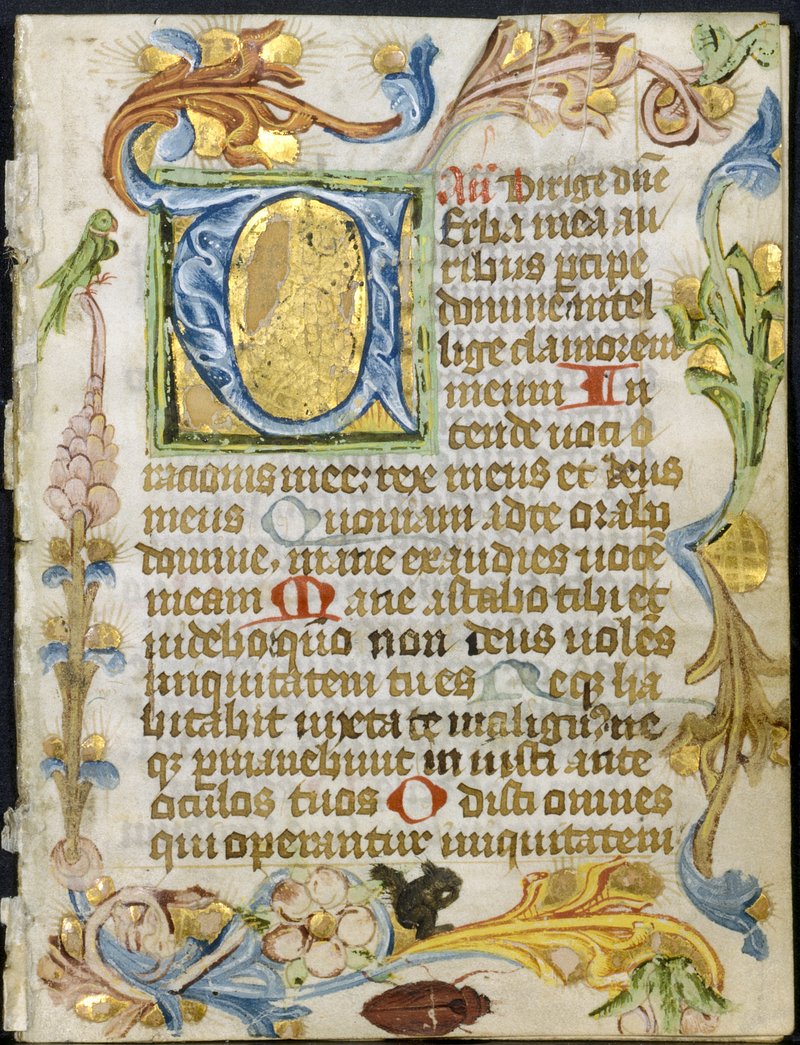 Añ Dirige dñe
V Erba mea au
ribus ꝑcipe
domine intel
lige clamorem
meum In
tende voci o
rationis mee: rex meus et deus
meus Quoniam ad te orabo
domine, mane exaudies uocē
meam Mane astabo tibi et
uidebo qm̄o non deus uolēs
iniquitatem tu es Neqꝫ ha
bitabit iuxta te malignꝰ ne
qꝫ ꝑmanebunt in iusti ante
oculos tuos Odisti omnes
qui operantur iniquitatem